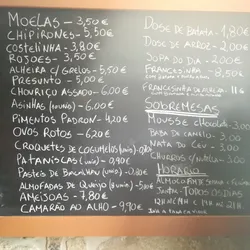 MOELAS - 3,50€
CHIPIRONES - 5,50€
COSTELINHA - 3,80€
ROJOES - 3,50€
ALHEIRA C/ GRELOS - 5,50€
PRESUNTO - 5,00€
CHOURIÇO ASSADO - 6.00€
ASINHAS (6unid) - 6.00€
PIMENTOS PADRON - 4,20€
OVOS ROTOS - 6.20€
CROQUETES DE COGUMELOS (unid)
PATANISCAS (unid) - 0,90€
PASTEIS DE BACALHAU (unid) - 0.80€
ALMOFADAS DE QUEIJO (6unid) - 5,80€
AMEIJOAS - 7,80€
CAMARÃO AO ALHO - 9,90€
DOSE DE BATATA - 1,80€
DOSE DE ARROZ - 2.00€
SOPA DO DIA - 2.00€
FRANCESINHA - 8.50€
FRANCESINHA DA CASA - 11€
SOBREMESAS
MOUSSE CHOCOLATE - 3.00
BABA DE CAMELO - 3.00
NATA DO CÉU - 3.00
CHURROS C/ NUTELLA
HORÁRIO
TODOS OS DIAS